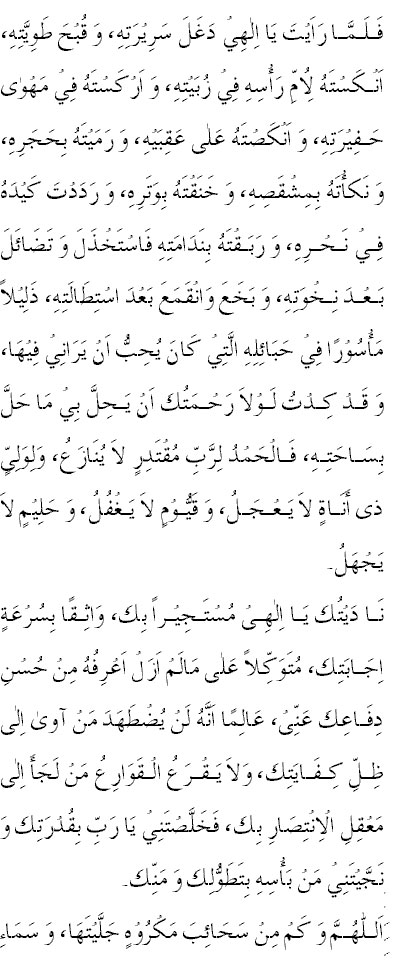 فَلَمَّا رَاَيْتَ يَا اِلٰهِيْ دَغَلَ سَرِيْرَتِهِ، وَ قُبْحَ طَوِيَّتِهِ،
اَنْكَسْتَهُ لِاُمِّ رَأْسِهِ فِيْ زُبْيَتِهِ، وَ اَرْكَسْتَهُ فِيْ مَهْوٰى
حَفِيْرَتِهِ، وَ اَنْكَصْتَهُ عَلٰى عَقِبَيْهِ، وَ رَمَيْتَهُ بِحَجَرِهِ،
وَ نَكَأْتَهُ بِمِشْقَصِهِ، وَ خَنَقْتَهُ بِوَتَرِهِ، وَ رَدَدْتَ كَيْدَهُ
فِيْ نَحْرِهِ، وَ رَبَقْتَهُ بِنَدَامَتِهِ فَاسْتَخْذَلَ وَ تَضَائَلَ
بَعْدَ نِخْوَتِهِ، وَ بَخَعَ وَانْقَمَعَ بَعْدَ اسْتِطَالَتِهِ، ذَلِيْلاً
مَأْسُوْرًا فِيْ حَبَائِلِهِ الَّتِيْ كَانَ يُحِبُّ اَنْ يَرَانِيْ فِيْهَا،
وَ قَدْ كِدْتُ لَوْلاَ رَحْمَتُكَ اَنْ يَحِلَّ بِيْ مَا حَلَّ
بِسَاحَتِهِ، فَالْحَمْدُ لِرَبِّ مُقْتَدِرٍ لاَ يُنَازَعُ، وَلِوَلِيٍّ
ذِى أَنَاةٍ لاَ يَعْجَلُ، وَ قَيُّوْمٍ لاَ يَغْفُلُ، وَ حَلِيْمٍ لاَ
يَجْهَلُ۔
نَا دَيْتُكَ يَا اِلٰهِيْ مُسْتَجِيْراً بِكَ، وَاثِقًا بِسُرْعَةِ
اِجَابَتِكَ، مُتَوَكِّلاً عَلٰى مَالَمْ اَزَلْ اَعْرِفُهُ مِنْ حُسْنِ
دِفَاعِكَ عَنِّيْ، عَالِمًا اَنَّهُ لَنْ يُضْطَهَدَ مَنْ آوىٰ اِلٰى
ظِلِّ كِفَايَتِكَ، وَلاَ يَقْرَعُ الْقَوَارِعُ مَنْ لَجَأَ اِلٰى
مَعْقِلِ الْاِنْتِصَارِ بِكَ، فَخَلَّصْتَنِيْ يَا رَبِّ بِقُدْرَتِكَ وَ
نَجَّيْتَنِيْ مَنْ بَأْسِهِ بِتَطَوُّلِكَ وَ مَنِّكَ۔
اَللّٰهُمَّ وَ كَمْ مِنْ سَحَائِبَ مَكْرُوْهٍ جَلَّيْتَهَا، وَ سَمَاءِ